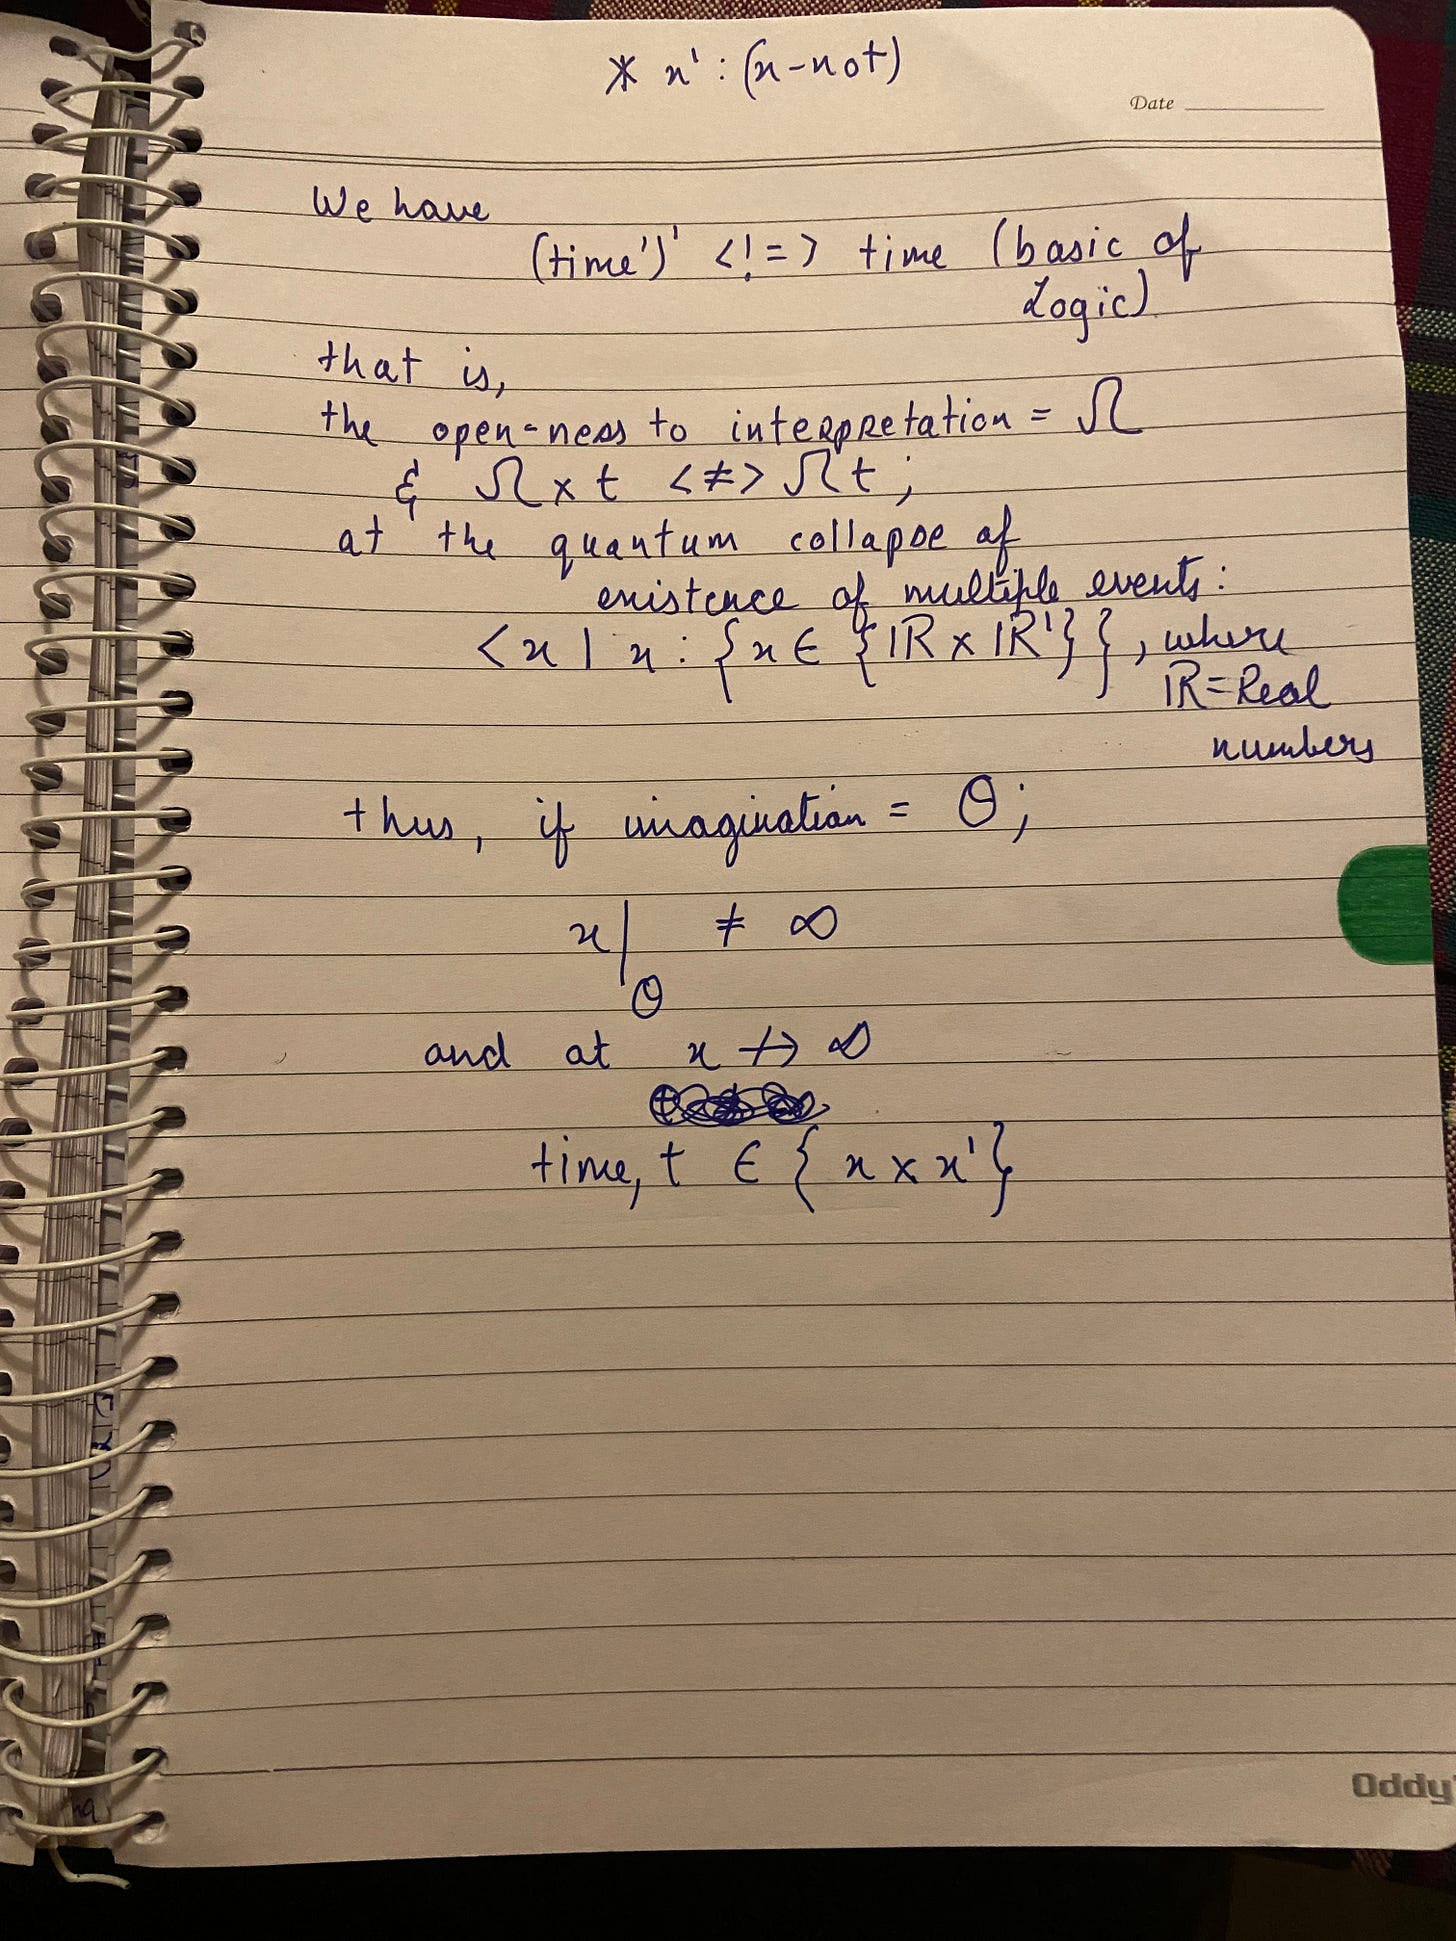 * x' : (x-not)
Date
We have
(time')' <!=> time (basic of
Logic)
that is,
the open-ness to interpretation = Ω
& Ω x t <≠> Ωt ;
at the quantum collapse of
existence of multiple events:
<x | x : {x ∈ {ℝ x ℝ'}}, where
ℝ = Real
numbers
thus, if imagination = Θ;
x| ≠ ∞
Θ
and at x ↛ ∞
time, t ∈ { x x x' }
Oddy